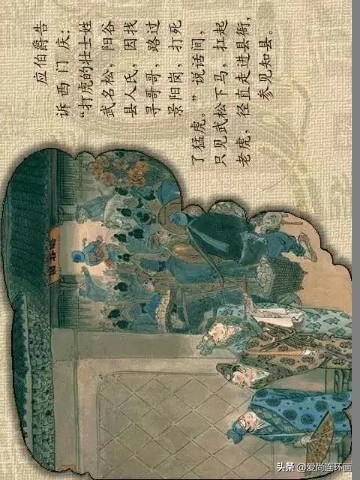 应伯爵告
诉西门庆：
“打虎的壮士姓
武名松，阳谷
县人氏，因找
寻哥哥，路过
景阳岗，打死
了猛虎。”说话间，
只见武松下马，扛起
老虎，径直走进县衙，
参见知县。
头条 @爱尚连环画